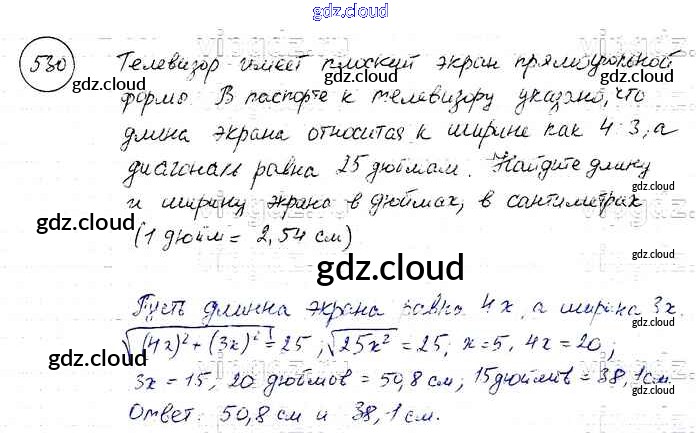 gdz.cloud
530 Телевизор имеет плоский экран прямоугольной
gdz.cloud gdz.cloud gdz.cloud
форма. В паспорте к телевизору указано, что
длина экрана относится к ширине как 4:3, а
диагональ равна 25 дюймам. Найдите длину
и ширину экрана в дюймах, в сантиметрах
gdz.cloud gdz.cloud
(1 дюйм = 2,54 см)
gdz.cloud
Пусть длинна экрана равна 4x, а ширина 3x.
√(4x)²+(3x)² = 25; √25x² = 25; x=5, 4x=20;
gdz.cloud gdz.cloud gdz.cloud
3x = 15, 20 дюймов = 50,8 см; 15 дюймов = 38,1 см.
Ответ: 50,8 см и 38,1 см.
gdz.cloud